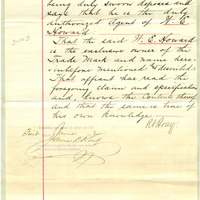 being duly sworn deposes and
says that he is the duly
authorized Agent of W. E.
Howard
That the said W. E. Howard
is the exclusive owner of the
Trade Mark and name here-
inbefore mentioned & described
That affiant has read the
foregoing claim and specification
and knows the contents thereof
and that the same is true of
his own knowledge